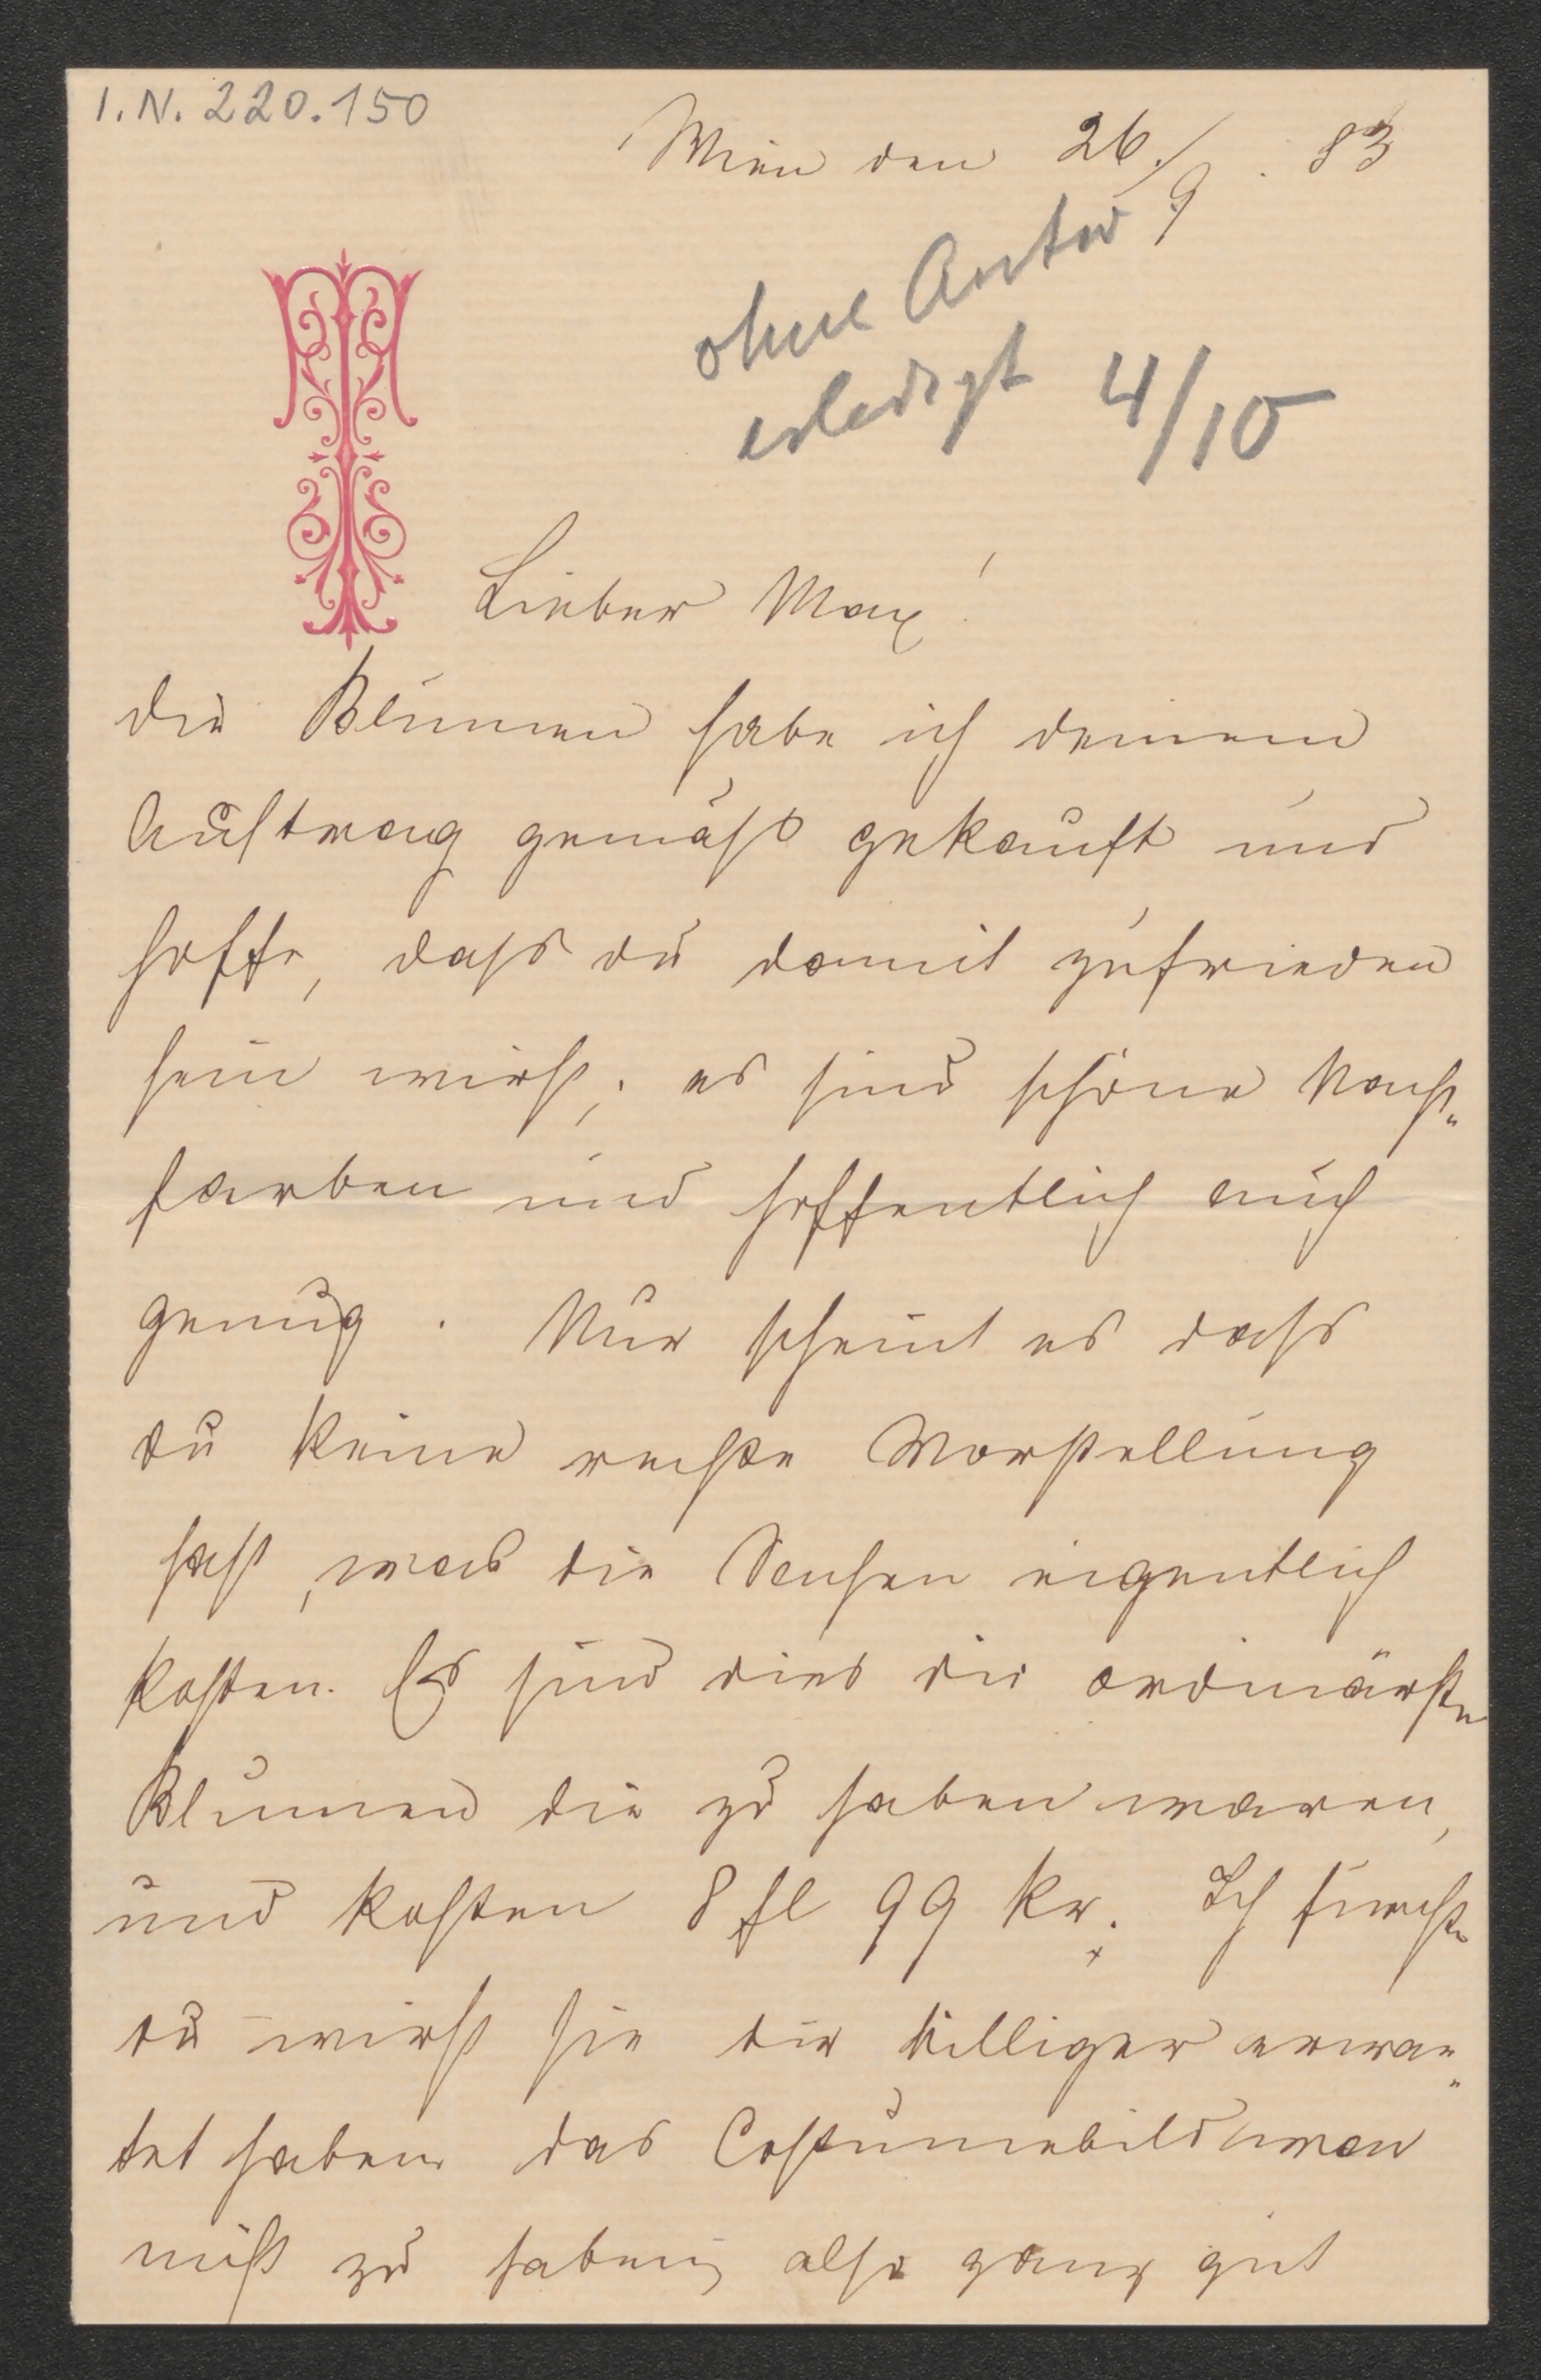 I.N. 220.150
Wien den 26./9. 83
ohne Antw
erledigt 4/10
Lieber Max!
die Blumen habe ich deinem
Auftrag gemäß gekauft und
hoffe, dass du damit zufrieden
sein wirst; es sind schöne Nacht-
farben und hoffentlich auch
genug. Nur scheint es dass
du keine rechte Vorstellung
hast, was die Sachen eigentlich
kosten. Es sind dies die ordinärste
Blumen die zu haben waren,
und kosten 8 fl 99 kr. Ich fürchte
du wirst sie dir billiger erwar-
tet haben das Costumebild war
nicht zu haben, also ganz gut